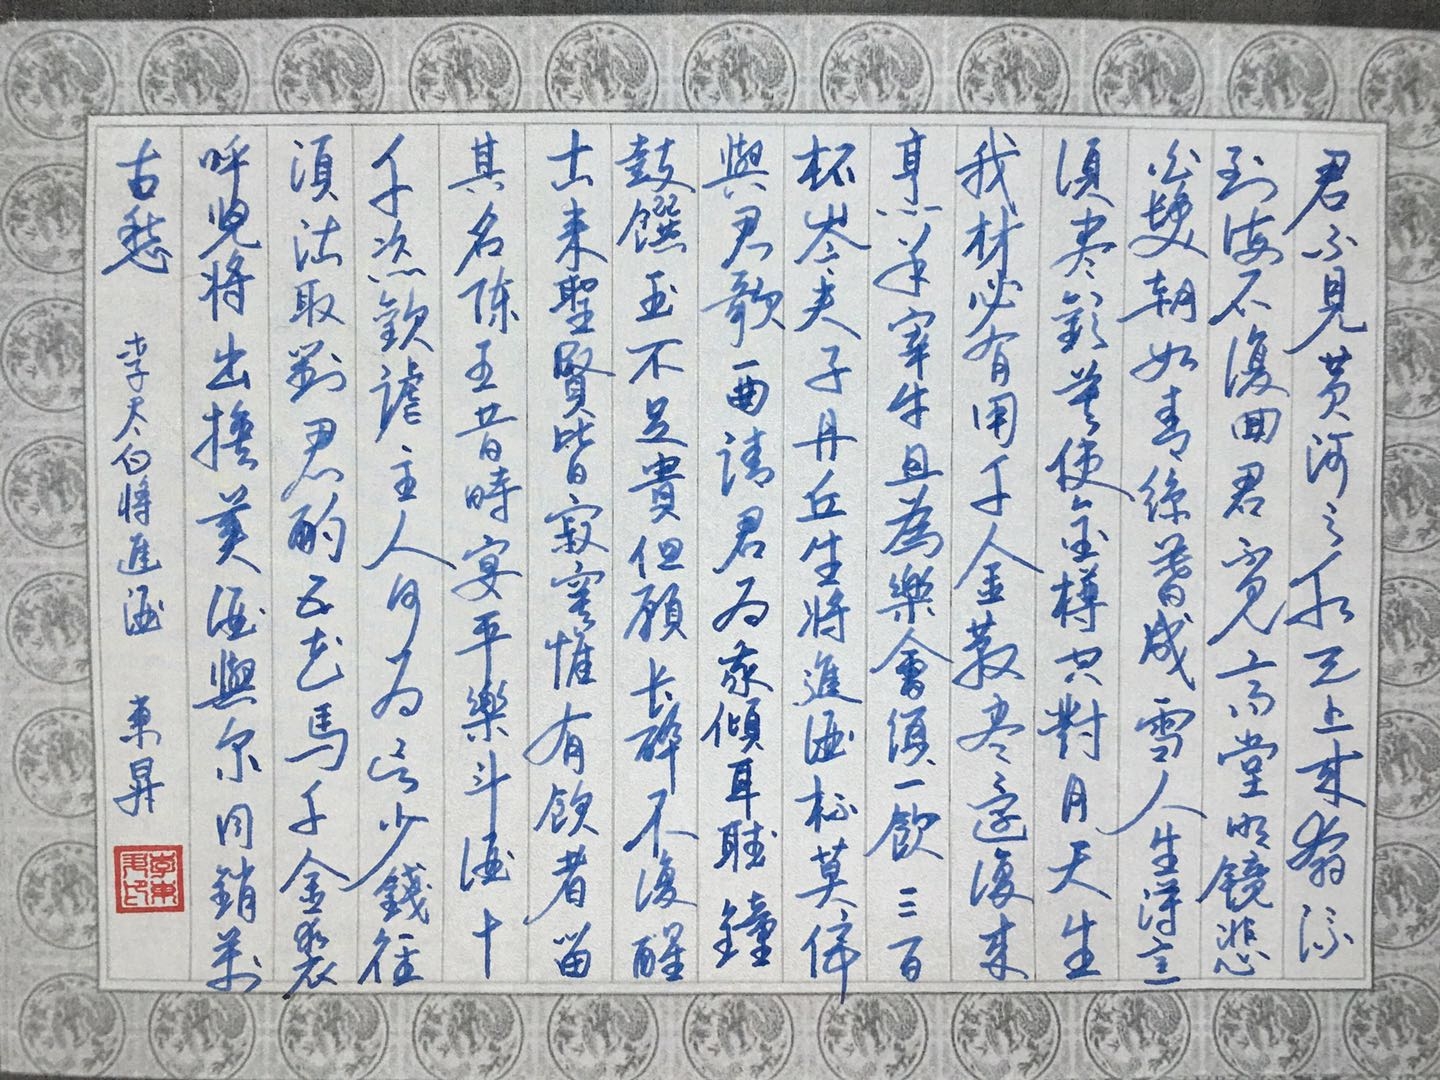 君不見黄河之水天上來奔流
到海不復回君不見高堂明鏡悲
白髮朝如青絲暮成雪人生得意
須尽歡莫使金樽空對月天生
我材必有用千金散尽還復來
烹羊宰牛且為樂會須一飲三百
杯岑夫子丹丘生將進酒杯莫停
與君歌一曲請君为我傾耳聽鐘
鼓饌玉不足貴但願長醉不復醒
古來聖賢皆寂寞惟有飲者留
其名陳王昔時宴平樂斗酒十
千恣歡謔主人何为言少錢徑
須沽取對君酌五花馬千金裘
呼兒將出換美酒與尔同銷萬
古愁 李太白將進酒 東昇
李東昇印